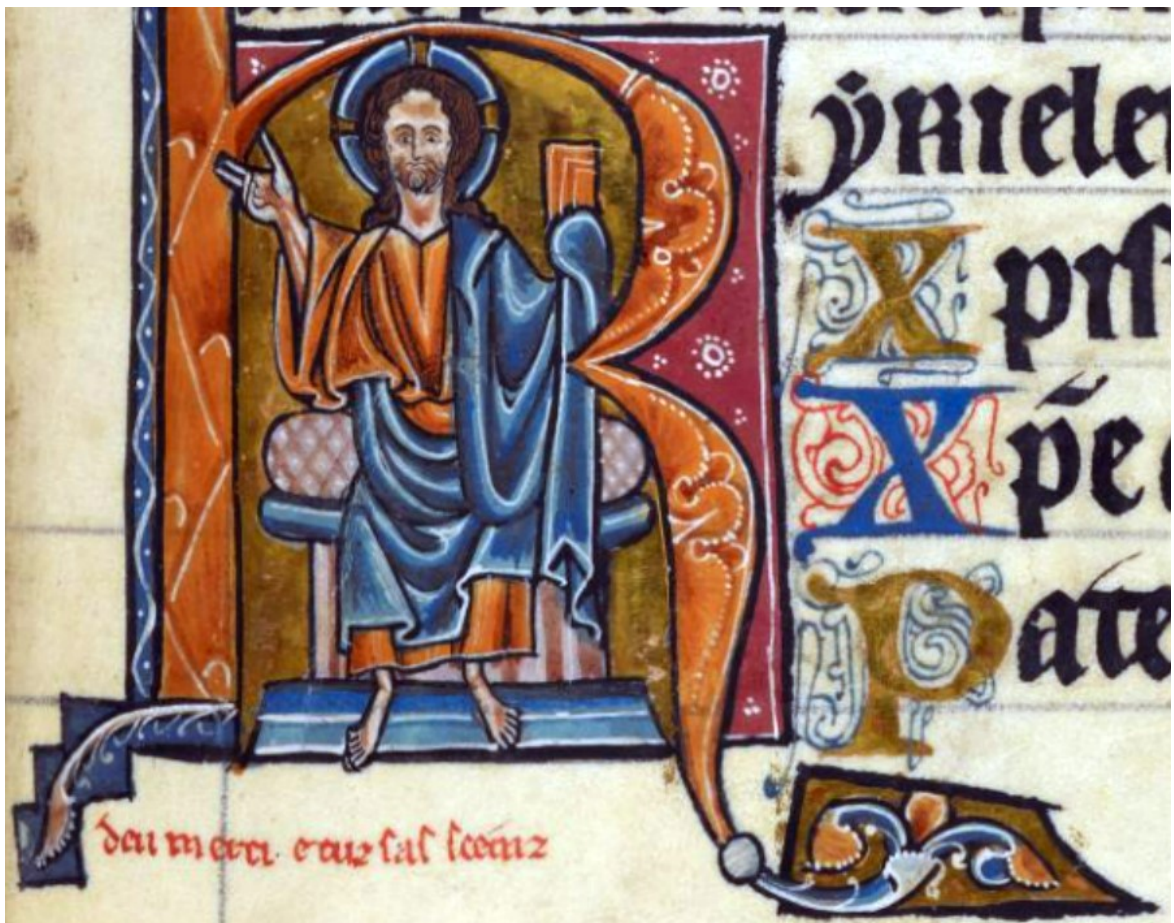 K
yriele
Xpist
Xp̄e
Pate
deu merci. e tuz sas